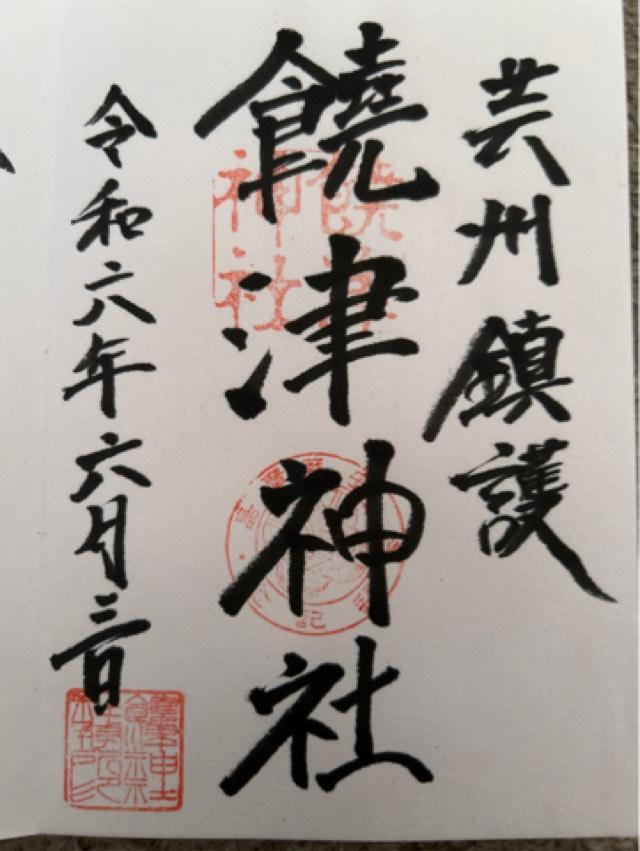 芸州鎮護
饒津神社
令和六年六月三日